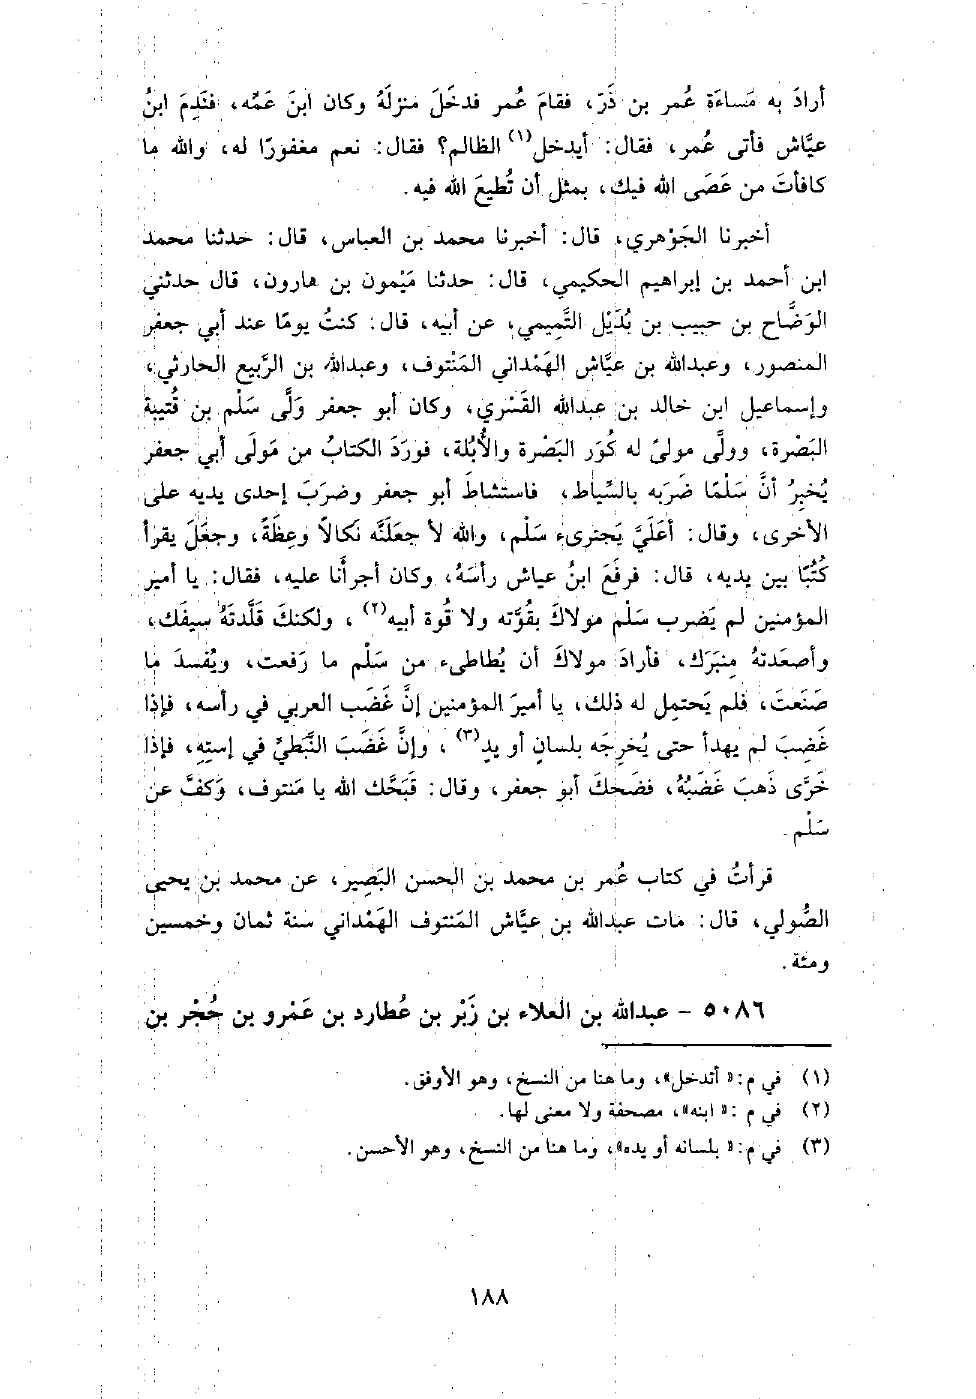 أرادَ به مَساءَة عُمر بن ذَرّ، فقامَ عُمر فدخَلَ منزلَهُ وكان ابنَ عَمِّه، فنَدِمَ ابنُ
عيَّاش فأتى عُمر، فقال: أيدخل(١) الظالم؟ فقال: نعم مغفورًا له، والله ما
كافأتَ من عَصَى الله فيك، بمثل أن تُطيعَ الله فيه.
أخبرنا الجَوْهري، قال: أخبرنا محمد بن العباس، قال: حدثنا محمد
ابن أحمد بن إبراهيم الحكيمي، قال: حدثنا مَيْمون بن هارون، قال حدثني
الوَضَّاح بن حبيب بن بُدَيْل التَّميمي، عن أبيه، قال: كنتُ يومًا عند أبي جعفر
المنصور، وعبدالله بن عيَّاش الهَمْداني المَنْتوف، وعبدالله بن الرَّبيع الحارثي،
وإسماعيل ابن خالد بن عبدالله القَسْري، وكان أبو جعفر وَلَّى سَلْم بن قُتيبة
البَصْرة، وولَّى مولىً له كُوَر البَصْرة والأُبُلة، فورَدَ الكتابُ من مَولَى أبي جعفر
يُخبِرُ أنَّ سَلْمًا ضَرَبه بالسِّياط، فاستشاطَ أبو جعفر وضرَبَ إحدى يديه على
الأخرى، وقال: أعَلَيَّ يَجترىء سَلْم، والله لأجعلَنَّه نَكالاً وعِظَةً، وجعَلَ يقرأ
كُتُبًا بين يديه، قال: فرفَعَ ابنُ عياش رأسَهُ، وكان أجرأَنا عليه، فقال: يا أمير
المؤمنين لم يَضرب سَلْم مولاكَ بقُوَّته ولا قُوة أبيه(٢)، ولكنكَ قَلَّدتَهُ سيفَك،
وأصعَدتهُ مِنبَرَك، فأرادَ مولاكَ أن يُطاطىء من سَلْم ما رَفعت، ويُفسدَ ما
صَنَعتَ، فلم يَحتمِل له ذلك، يا أميرَ المؤمنين إنَّ غَضَب العربي في رأسه، فإذا
غَضِبَ لم يهدأ حتى يُخرِجَه بلسانٍ أو يدٍ(٣)، وإنَّ غَضَبَ النَّبَطيِّ في إستِهِ، فإذا
خَرَّى ذَهبَ غَضَبُهُ، فضَحكَ أبو جعفر، وقال: قَبَحَّك الله يا مَنتوف، وَكفَّ عن
سَلْم.
قرأتُ في كتاب عُمر بن محمد بن الحسن البَصِير، عن محمد بن يحيى
الصُّولي، قال: مات عبدالله بن عيَّاش المَنتوف الهَمْداني سنة ثمان وخمسين
ومئة.
٥٠٨٦ – عبدالله بن العلاء بن زَبْر بن عُطارد بن عَمْرو بن حُجْر بن
(١) في م: «أتدخل»، وما هنا من النسخ، وهو الأوفق.
(٢) في م: «ابنه»، مصحفة ولا معنى لها.
(٣) في م: «بلسانه أو يده»، وما هنا من النسخ، وهو الأحسن.
١٨٨